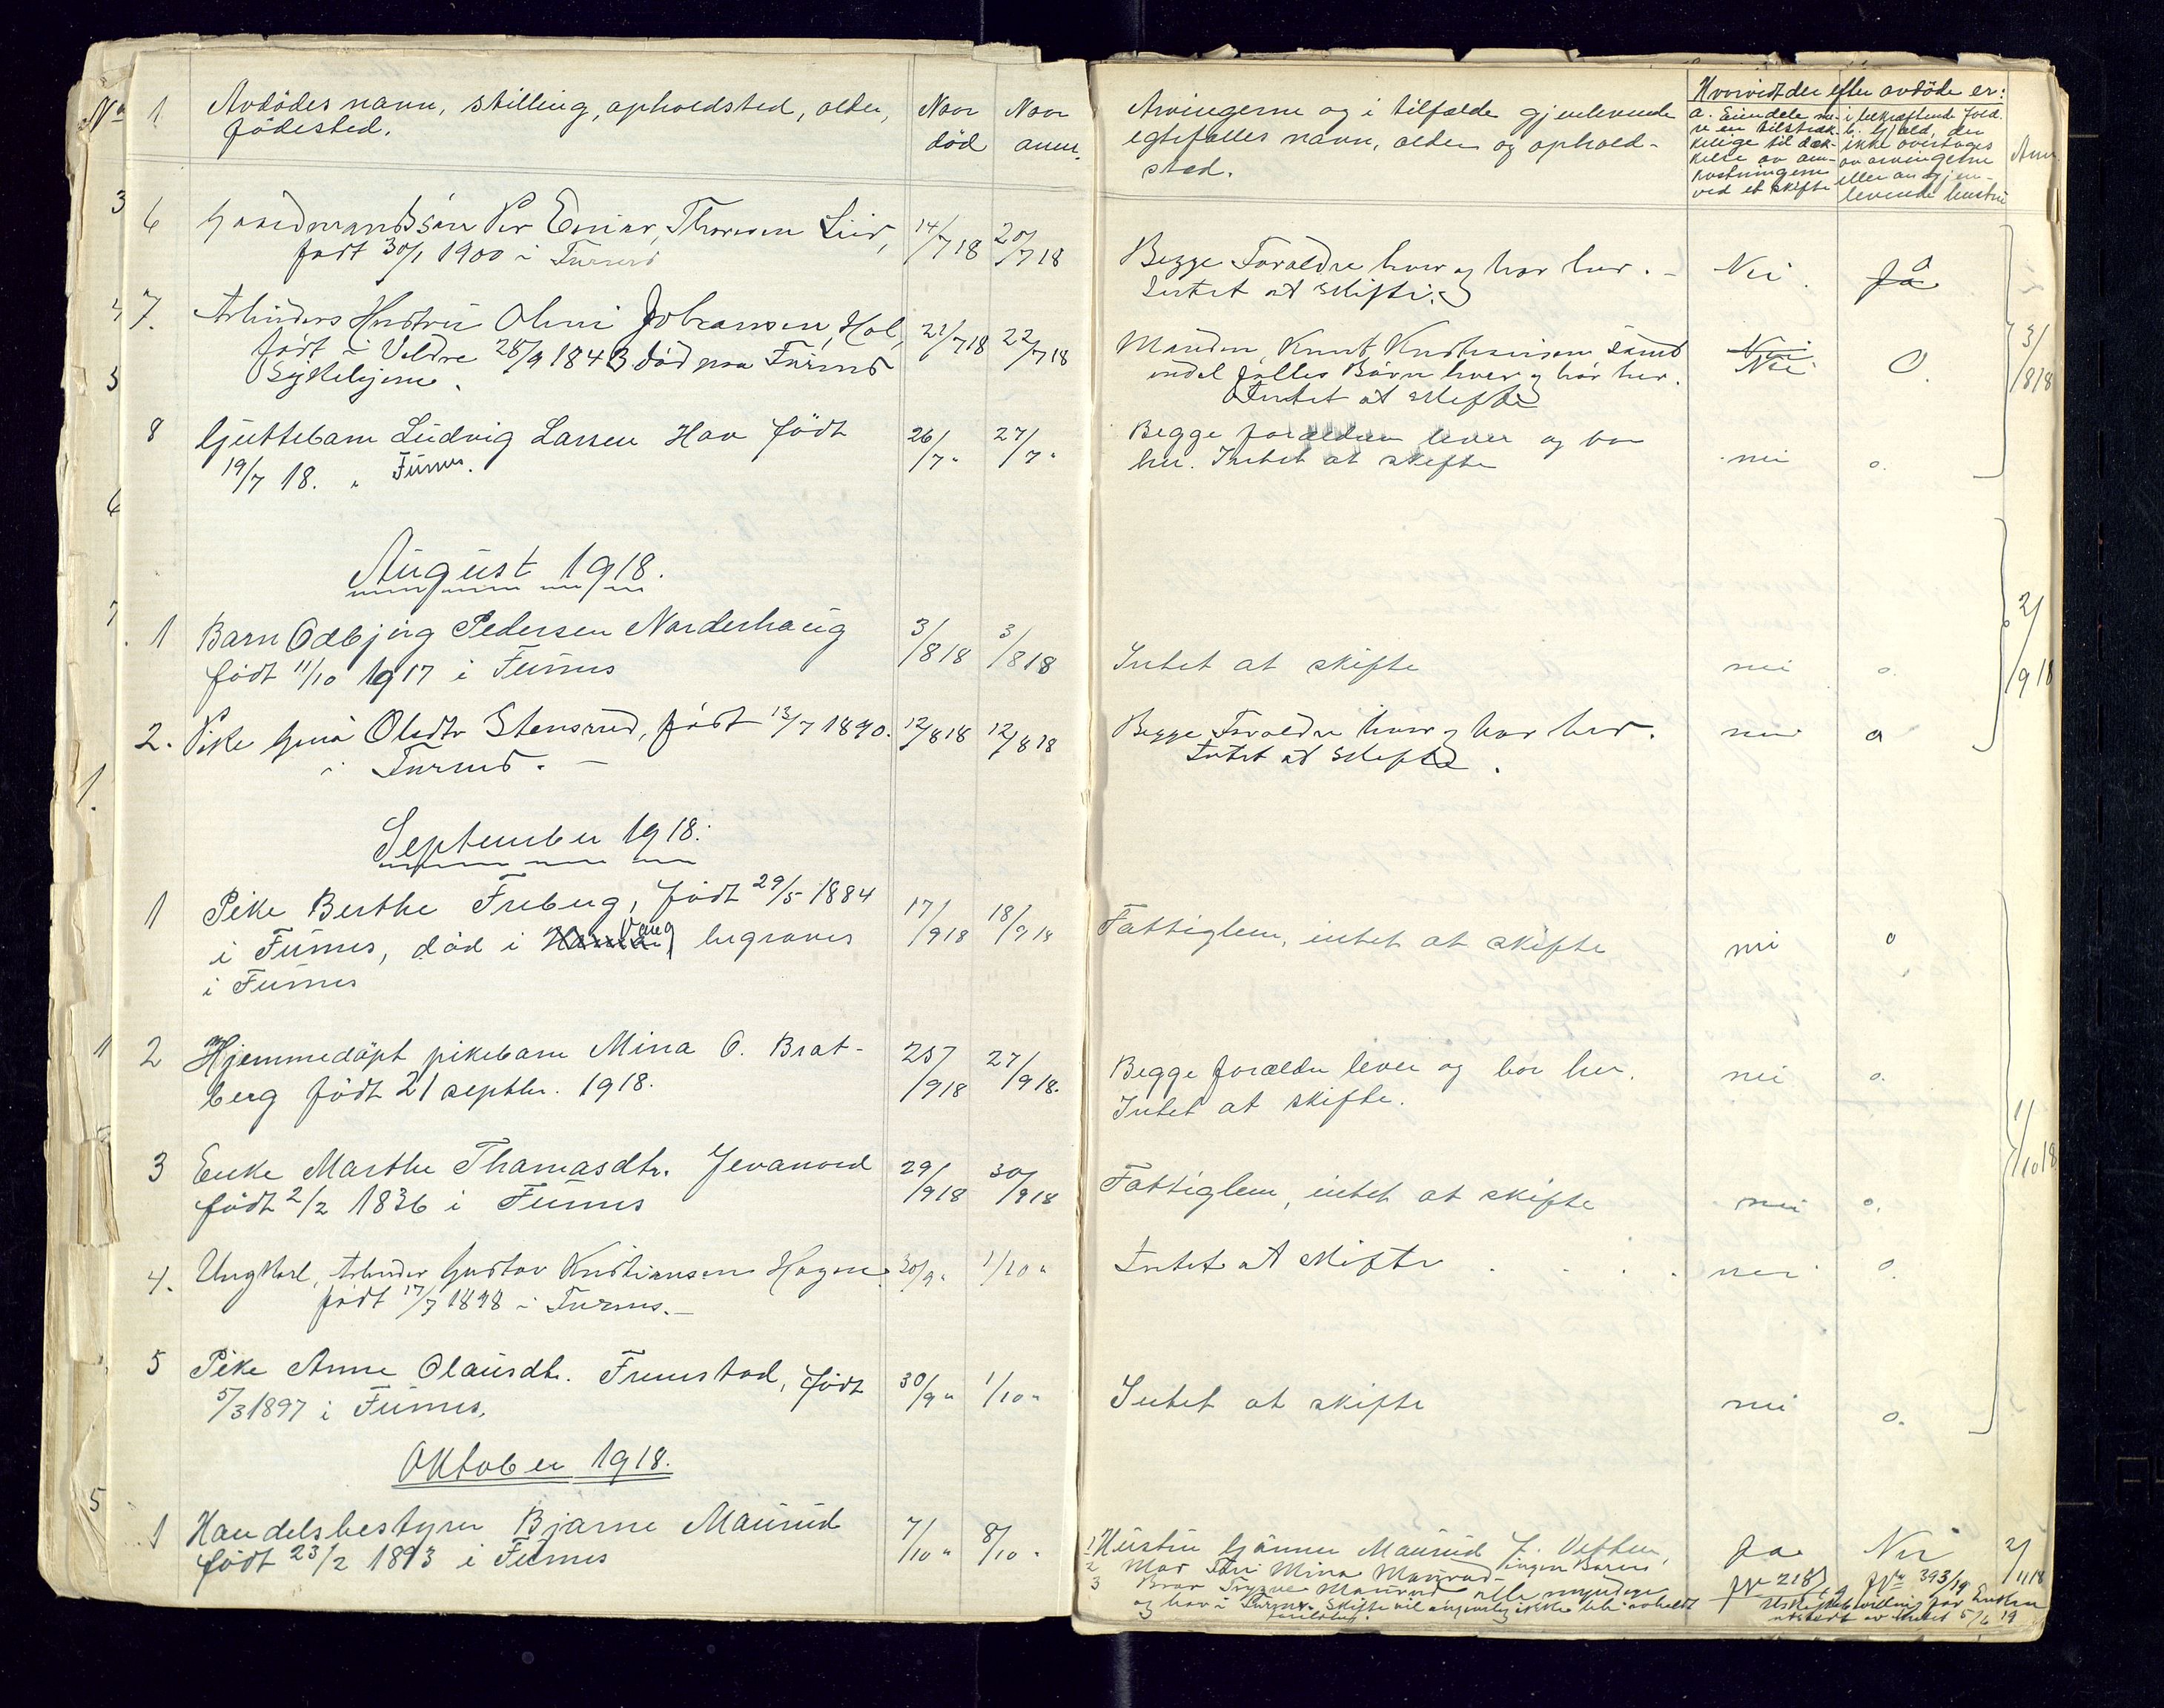 No 1 Avdödes navn, stilling, opholdsted, alder, födested. Naar död Naar anm.
Arvingerne og i tilfælde gjenlevende
egtefælles navn, alder og ophold-
sted.
Hvorvidt der efter avdöde er:
a. Eiendele
til dæk-
kelse av om-
kostningerne
ved et skifte
b. Gjæld, der
ikke overtages
av arvingerne
eller av gjen-
levende hustru
Anm.
6 Gaardmandssön Per Einar Thoresen Lier, 14/7 18 20/7 18
født 30/1 1900 i Furnes
Begge Forældre lever og bor her. -
Intet at skifte.
Nei. Ja
7. Arbeiders Hustru Oline Johansen, Hol, 21/7 18 22/7 18
født i Veldre 28/9 1843 död paa Furnes
Sykehjem.
Manden, Knut Kristiansen samt
endel fælles Börn lever og bor her.
Intet at skifte
Nei
Nei O.
3/8 18
8 Guttebarn Ludvig Larsen Hov født 26/7 " 27/7 "
19/7 18. i Furnes.
Begge forældre lever og bor
her. Intet at skifte nei o.
August 1918.
1 Barn Odbjörg Pedersen Norderhaug 3/8 18 3/8 18
født 11/10 1917 i Furnes
Intet at skifte nei o.
2/9 18
2. Pike Gina Olsdtr Stensrud, født 13/7 1890. 12/8 18 12/8 18
i Furnes. -
Begge Forældre lever og bor her. nei o
Intet at skifte.
September 1918.
1 Pike Berthe Freberg, født 29/5 1884 17/9 18 18/9 18
i Furnes, död i Vang begraves
i Furnes
Fattiglem, intet at skifte nei o
2 Hjemmedöpt pikebarn Mina O. Brat- 25/9 18 27/9 18.
berg født 21 septbr. 1918.
Begge forældre lever og bor her. nei o.
Intet at skifte.
3 Enke Marthe Thomasdtr. Jevanord 29/9 18 30/9 18
født 2/2 1836 i Furnes
Fattiglem, intet at skifte nei o.
1/10 18
4. Ungkarl, Arbeider Gustav Kristiansen Hagen 30/9 " 1/10 "
født 17/7 1898 i Furnes. -
Intet at skifte . . . . nei o.
5 Pike Anne Olausdtr. Frenstad, født 30/9 " 1/10 "
5/3 1897 i Furnes.
Intet at skifte nei o.
Oktober 1918.
1 Handelsbestyrer Bjarne Maurud 7/10 " 8/10 "
født 23/2 1893 i Furnes
1 Hustru Maurud f. ingen Barn
2 Mor Mina Maurud
3 Bror Trygve Maurud alle myndige
og bor i Furnes. Skifte vil ikke bli avholdt
Ja Nei 2/11 18
218/19 393/19
Uskiftebevilling for Enken
utstedt av 5/6 19